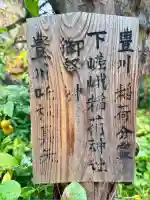 豊川稲荷分霊
下嵯峨稲荷神社
御祭神
豊川吒枳尼真天